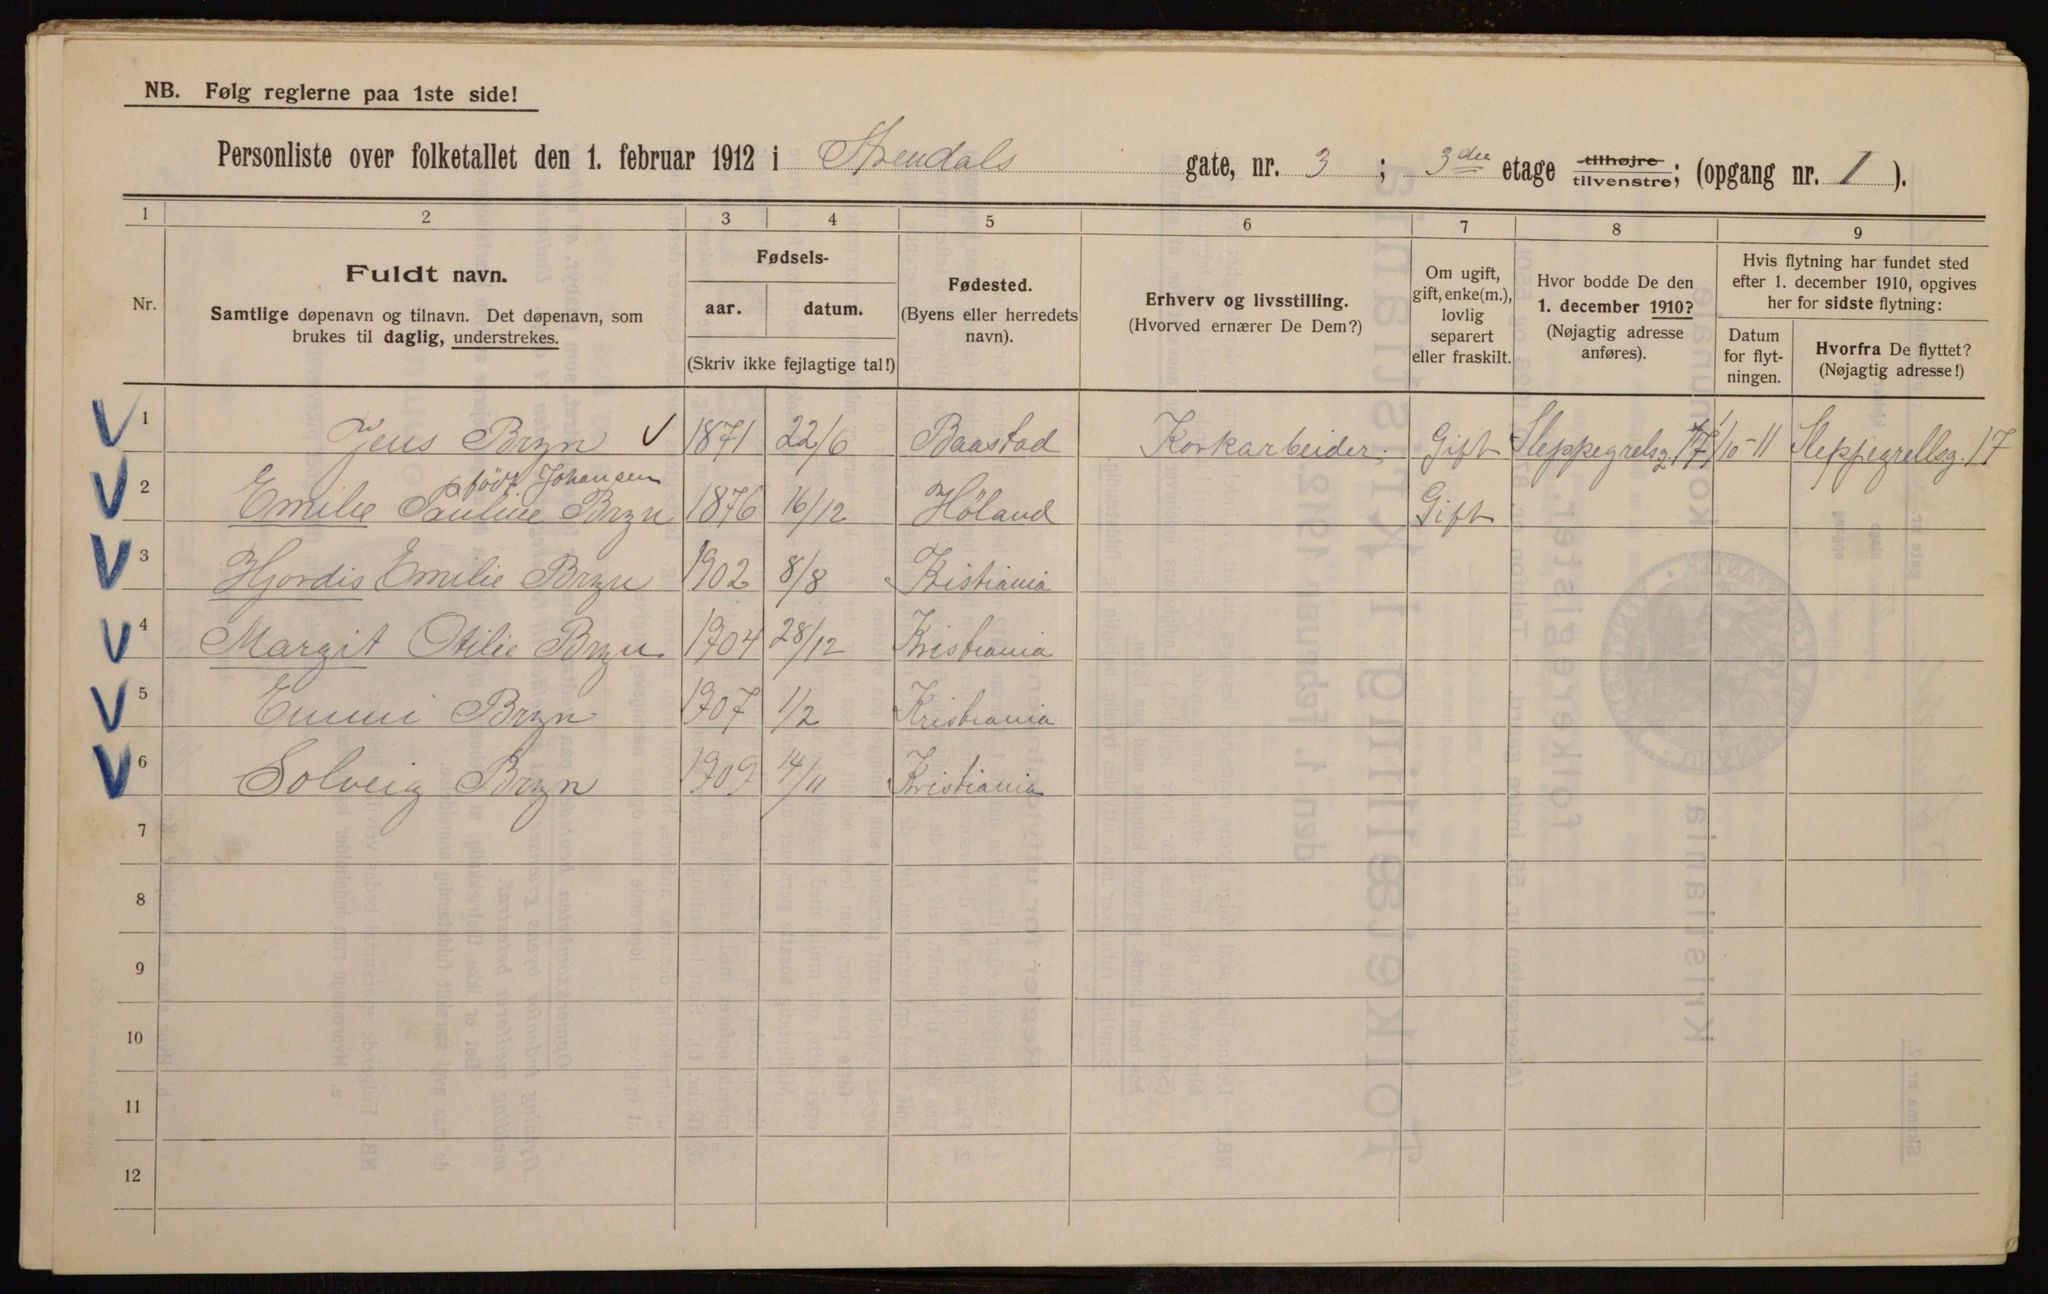 NB. Følg reglerne paa 1ste side!
Personliste over folketallet den 1. februar 1912 i Arendals gate, nr. 3 ; 3die etage tilhøjre tilvenstre; (opgang nr. I ).
1 2 3 4 5 6 7 8 9
Nr.
Fuldt navn.
Samtlige døpenavn og tilnavn. Det døpenavn, som
brukes til daglig, understrekes.
Fødsels-
aar. datum.
(Skriv ikke fejlagtige tal!)
Fødested.
(Byens eller herredets
navn).
Erhverv og livsstilling.
(Hvorved ernærer De Dem?)
Om ugift,
gift, enke(m.),
lovlig
separert
eller fraskilt.
Hvor bodde De den
1. december 1910?
(Nøjagtig adresse
anføres).
Hvis flytning har fundet sted
efter 1. december 1910, opgives
her for sidste flytning:
Datum
for flyt-
ningen.
Hvorfra De flyttet?
(Nøjagtig adresse!)
1 Jens Bryn V 1871 22/6 Baastad Korkarbeider. Gift Sleppegrelsg. 17 1/10-11 Sleppegrellsg. 17
født Johansen
2 Emilie Pauline Bryn 1876 16/12 Höland Gift
3 Hjordis Emilie Bryn 1902 8/8 Kristiania
4 Margit Otilie Bryn 1904 28/12 Kristiania
5 Emmi Bryn 1907 1/2 Kristiania
6 Solveig Bryn 1909 14/11 Kristiania
7
8
9
10
11
12